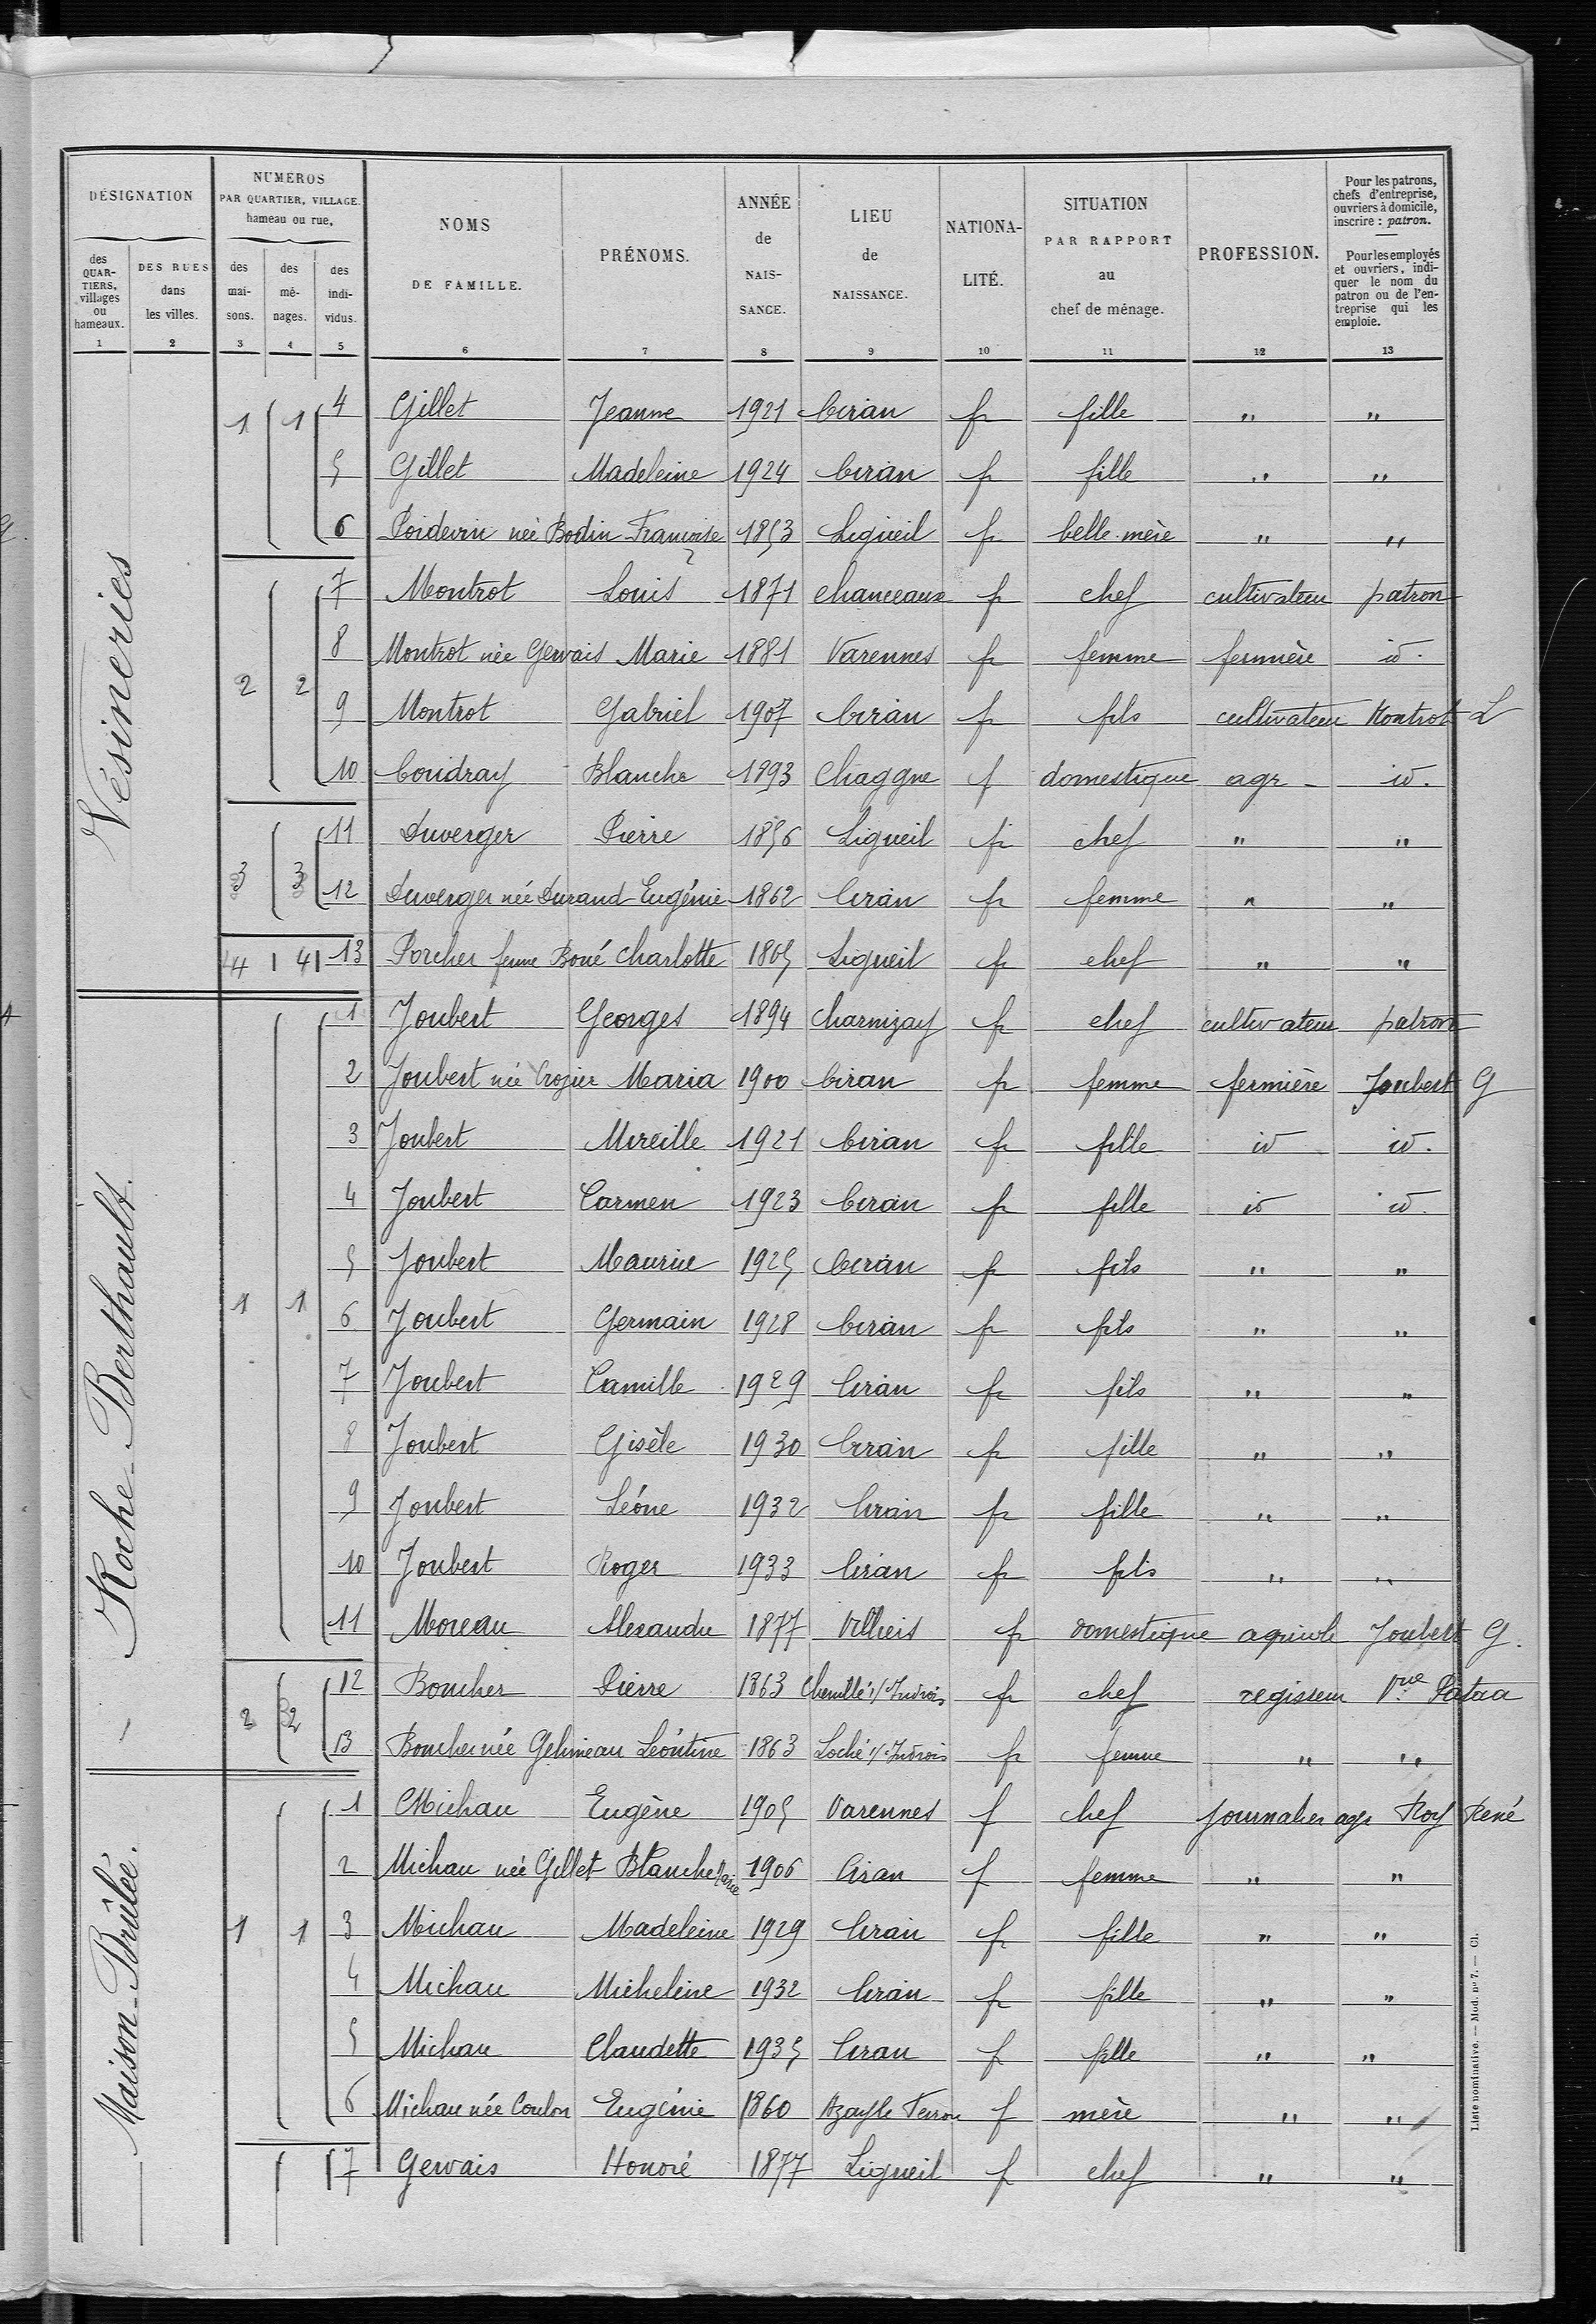 DÉSIGNATION
NUMEROS PAR QUARTIER, VILLAGE. hameau ou rue,
NOMS DE FAMILLE.
PRÉNOMS.
ANNÉE de NAIS- SANCE.
LIEU de NAISSANCE.
NATIONA- LITÉ.
SITUATION PAR RAPPORT au chef de ménage.
PROFESSION.
Pour les patrons, chefs d'entreprise, ouvriers à domicile, inscrire : patron.
Pour les employés et ouvriers, indi- quer le nom du patron ou de l'en- treprise qui les emploie.
des QUAR- TIERS, villages ou hameaux.
DES RUES dans les villes.
des mai- sons.
des mé- nages.
des indi- vidus.
1 2 3 4 5 6 7 8 9 10 11 12 13
Vésineries
1 1 4 Gillet Jeanne 1921 Ciran fr fille " "
5 Gillet Madeleine 1924 Ciran fr fille " "
6 Poidevin née Bodin Françoise 1853 Ligueil fr belle-mère " "
7 Montrot Louis 1871 Chanceaux fr chef cultivateur patron
2 2 8 Montrot née Gervais Marie 1881 Varennes fr femme fermière id.
9 Montrot Gabriel 1907 Ciran fr fils cultivateur Montrot L
10 Coudray Blanche 1893 f domestique agr - id.
3 3 11 Duverger Pierre 1856 Ligueil fr chef " "
12 Duverger née Durand Eugénie 1862 Ciran fr femme " "
4 4 13 Porcher femme Boué Charlotte 1865 Ligueil fr chef " "
Roche-Berthault.
1 1 1 Joubert Georges 1894 Charnizay fr chef cultivateur patron
2 Joubert née Crozier Maria 1900 Ciran fr femme fermière Joubert G
3 Joubert Mireille 1921 Ciran fr fille id id.
4 Joubert Carmen 1923 Ciran fr fille id id.
5 Joubert Maurice 1925 Ciran fr fils " "
6 Joubert Germain 1928 Ciran fr fils " "
7 Joubert Camille 1929 Ciran fr fils " "
8 Joubert Gisèle 1930 Ciran fr fille " "
9 Joubert Léone 1932 Ciran fr fille " "
10 Joubert Roger 1933 Ciran fr fils " "
11 Moreau Alexandre 1877 Villiers fr domestique agricole Joubert G.
2 2 12 Boucher Pierre 1863 Chemillé s/ Indrois fr chef regisseur Vve Pataa
13 Boucher née Gelineau Léontine 1863 Loché s/ Indrois fr femme " "
Maison-Brûlée.
1 1 1 Michau Eugène 1905 Varennes f chef journalier agr Roy René
2 Michau née Gillet Blanche Marie 1906 Ciran f femme " "
3 Michau Madeleine 1929 Ciran fr fille " "
4 Michau Micheline 1932 Ciran fr fille " "
5 Michau Claudette 1935 Ciran f fille " "
6 Michau née Coulon Eugénie 1860 Azay le Ferron f mère " "
7 Gervais Honoré 1877 Ligueil f chef " "
Liste nominative. — Mod. n° 7. — Cl.